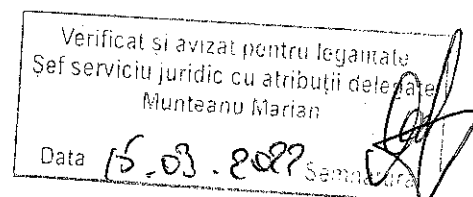 Verificat și avizat pentru legalitate
Șef serviciu juridic cu atribuții delegate
Munteanu Marian
Data 15.03.2022 Semnătura